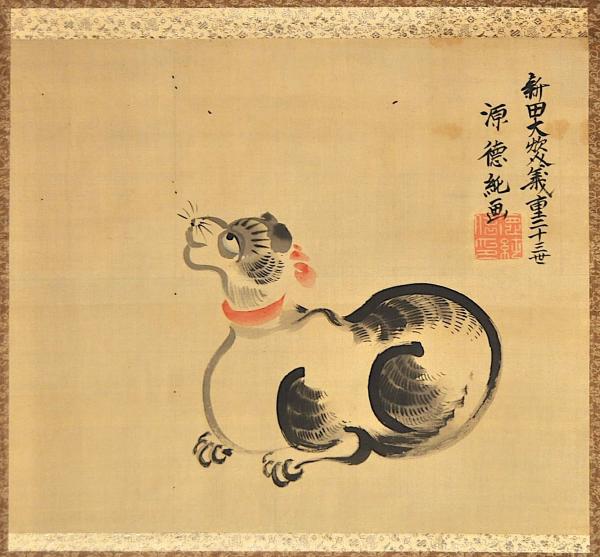 新田大炊介義重二十三世
源徳純画